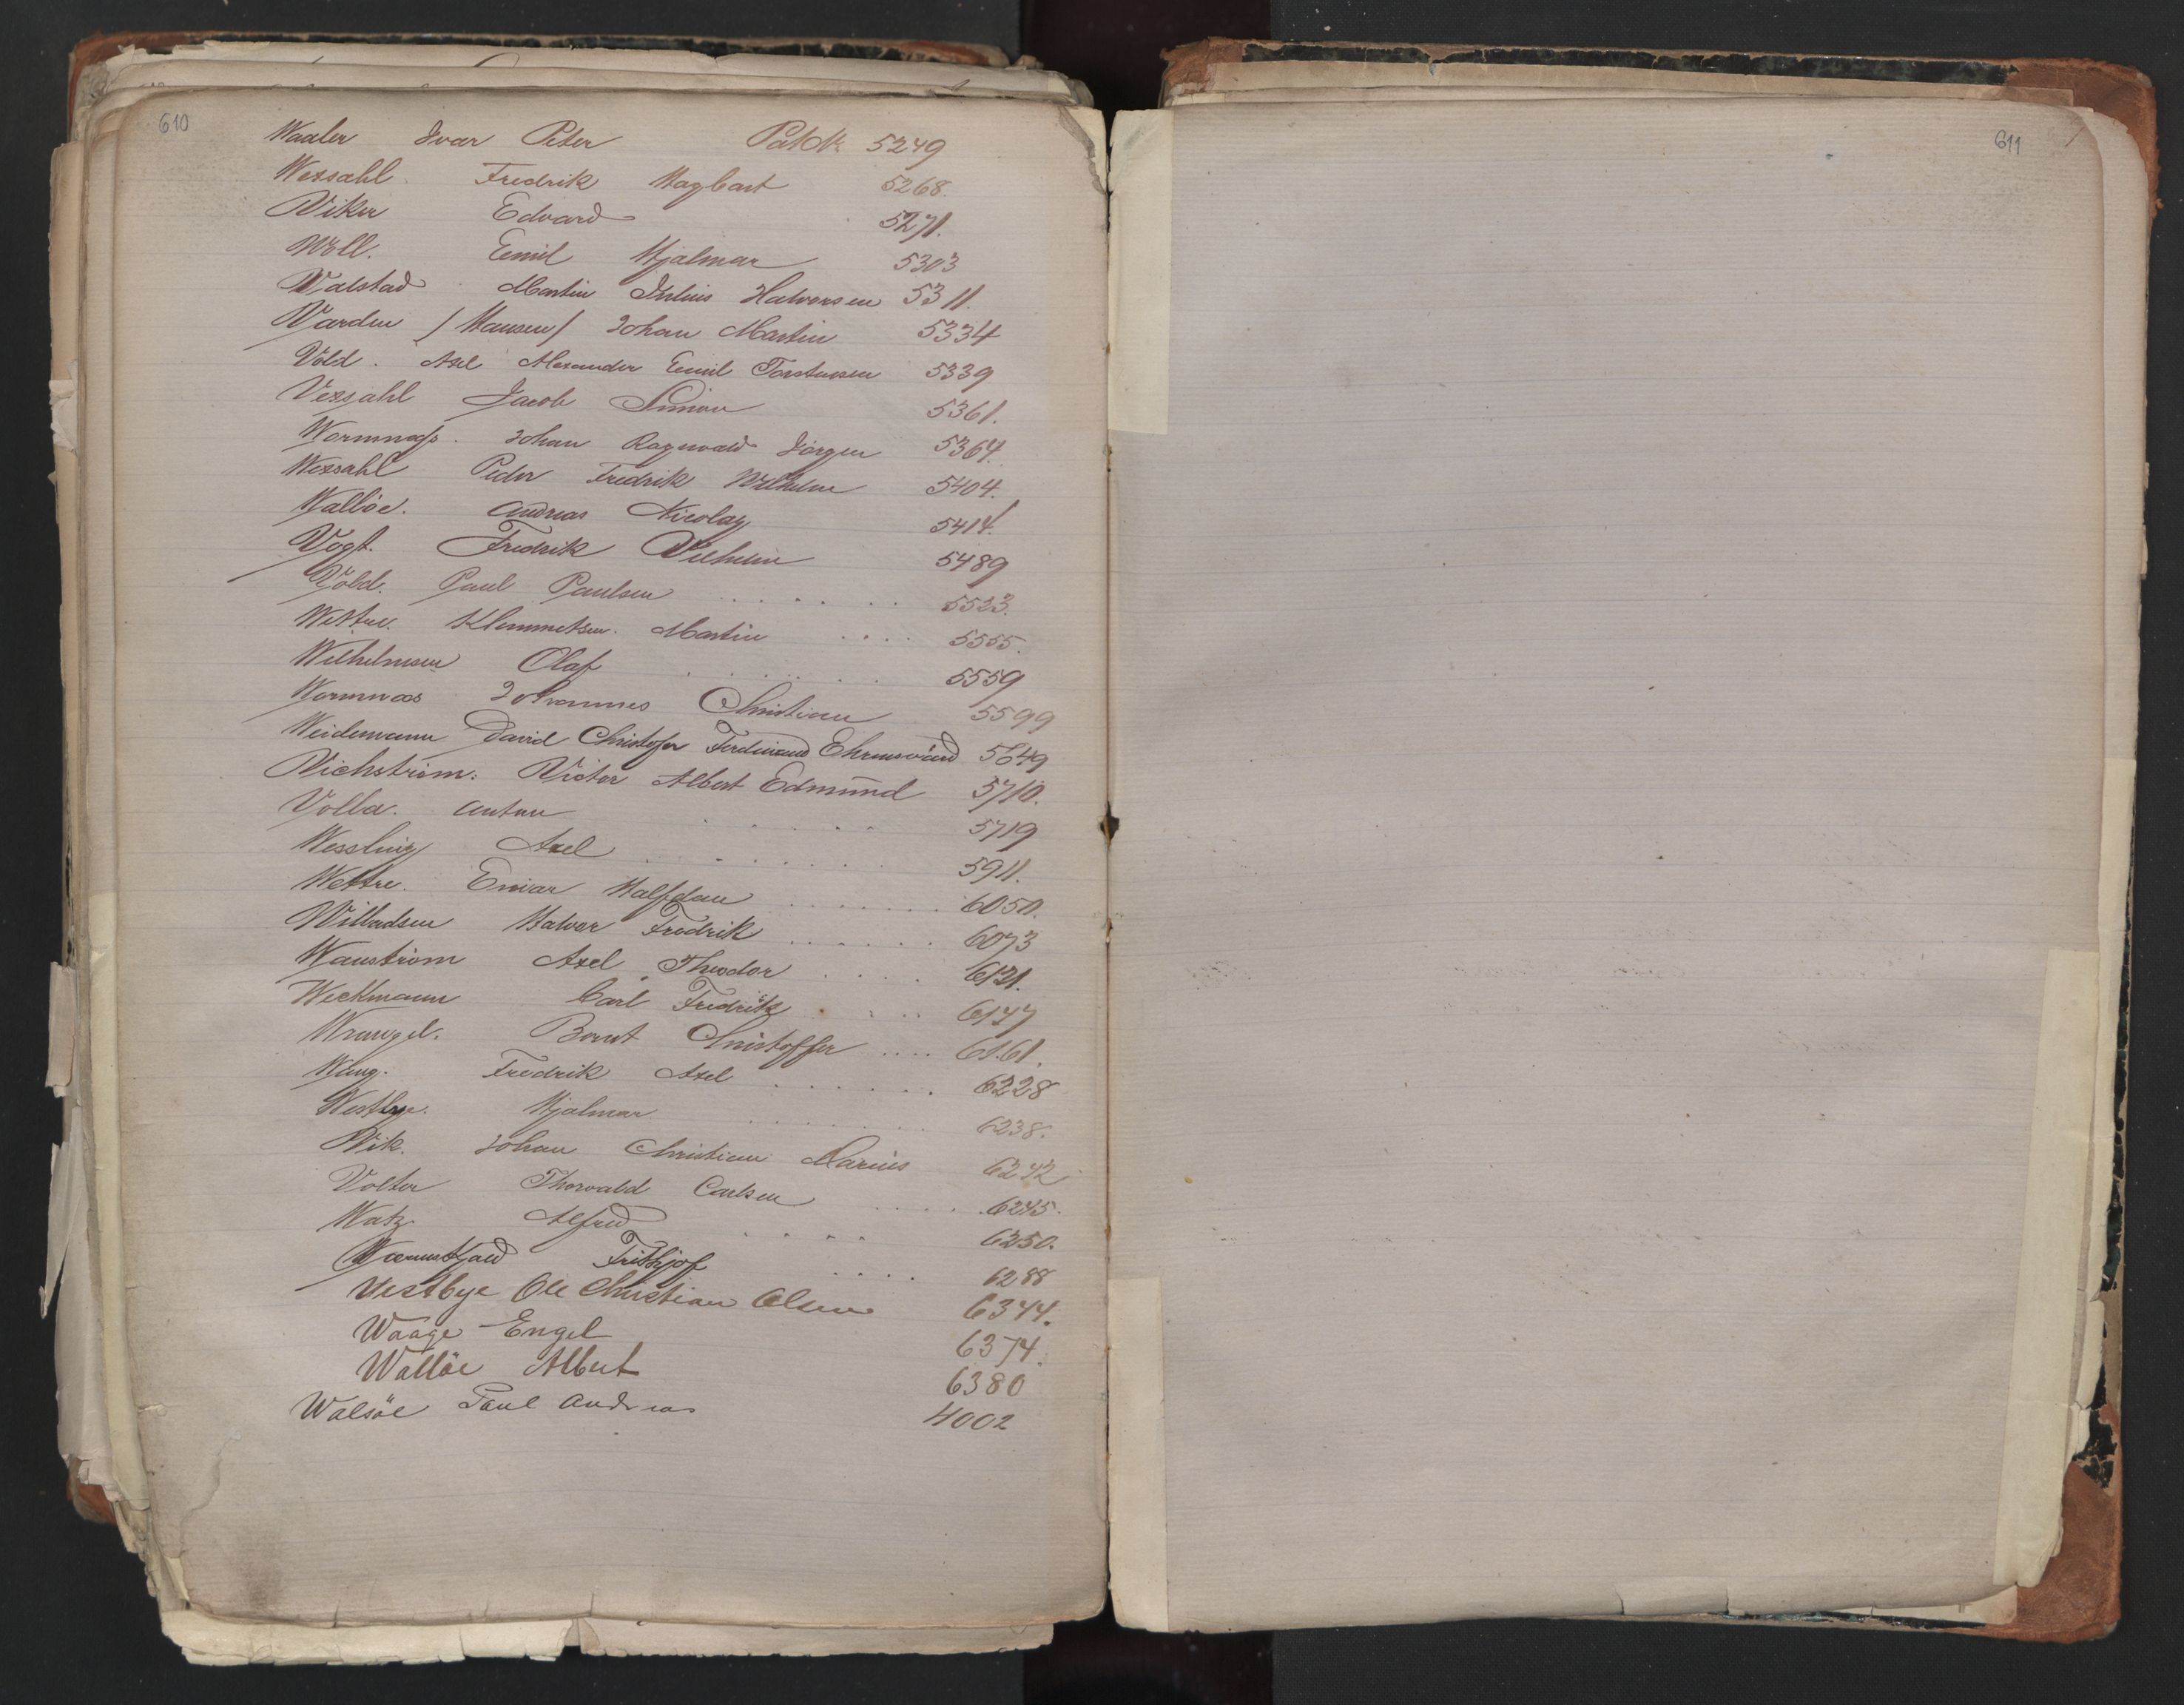 610
Waaler Ivar Peter Pat № 5249
Wexsahl Fredrik Hagbart 5268.
Viker Edvard 5271.
Woll. Emil Hjalmar 5303
Walstad Martin Julius Halvorsen 5311.
Varden /Hansen/ Johan Martin 5334
Vold. Axel Alexander Emil Torstensen 5339
Vexsahl Jacob Simon 5361.
Wormnæs. Johan Ragnvald Jörgen 5364.
Wexsahl Peder Fredrik Wilhelm 5404.
Wallöe. Andreas Nicolay 5414.
Vogt. Fredrik Vilhelm 5489
Vold. Paul Paulsen 5523.
Wettre. Klemmetsen. Martin 5555.
Wilhelmsen Olaf 5559
Wormnæs Johannes Christian 5599
Weidemann David Christofer Ferdinand Ehrensvärd 5649
Vichström: Victor Albert Edmund 5710.
Volla. Anton 5719
Wessling Axel 5911.
Wettre. Einar Halfdan 6050.
Wilbadsen Halvor Fredrik 6073
Wanström Axel Theodor 6121.
Weckmann Carl Fredrik 6177
Wrangel. Bernt Christoffer 6161.
Wang. Fredrik Axel 6228
Westbye. Hjalmar 6238.
Vik. Johan Christian Marius 6242
Volter Thorvald Carlsen 6245.
Watz Alfred 6250.
Frithjof 6288
Vestbye Ole Christian Olsen 6344.
Waage Engel 6374.
Wallöe Albert 6380
Walsöe Paul Andreas 4002
611